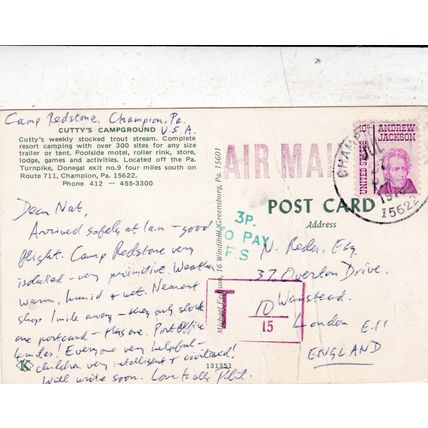 Camp Redstone, Champion, Pa.
U.S.A.
CUTTY'S CAMPGROUND
Cutty's weekly stocked trout stream. Complete
resort camping with over 300 sites for any size
trailer or tent. Poolside motel, roller rink, store,
lodge, games and activities. Located off the Pa.
Turnpike, Donegal exit no.9 four miles south on
Route 711, Champion, Pa. 15622.
Phone 412 — 455-3300
Dear Nat,
Arrived safely at 1am - good
flight. Camp Redstone very
isolated - very primitive. Weather
warm, humid & wet. Nearest
shop 1 mile away - they only stock
one postcard - this one. Post Office
Everyone very helpful -
children very intelligent & civilized!
Will write soon. Love to all,
K
131351
16 Windihill, Greensburg, Pa. 15601
AIR MAIL
UNITED STATES 10c
ANDREW
JACKSON
15622
POST CARD
Address
3P.
TO PAY
F S
T 10
15
N. Reder. Esq.
37 Overton Drive.
Wanstead.
London E.11
ENGLAND